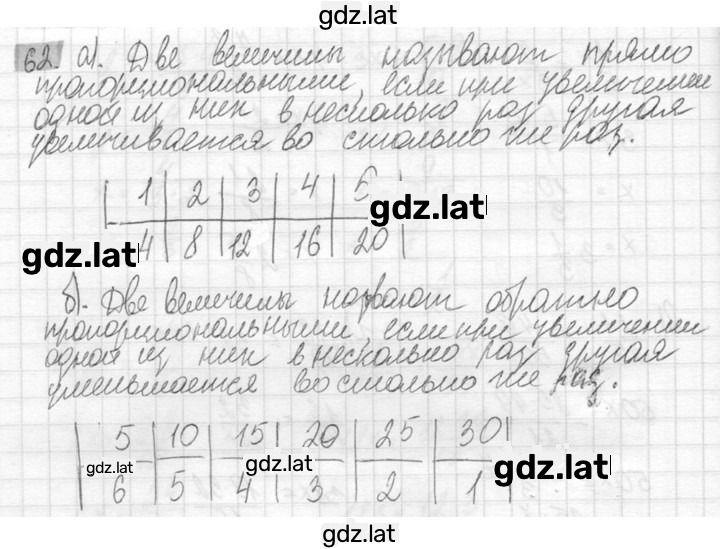 gdz.lat
62. а). Две величины называют прямо
пропорциональными, если при увеличении
одной из них в несколько раз другая
увеличивается во столько же раз.
1 2 3 4 5
gdz.lat
4 8 12 16 20
gdz.lat
б). Две величины назвают обратно
пропорциональными, если при увеличении
одной из них в несколько раз другая
уменьшается во столько же раз.
5 10 15 20 25 30
gdz.lat gdz.lat gdz.lat
6 5 4 3 2 1
gdz.lat